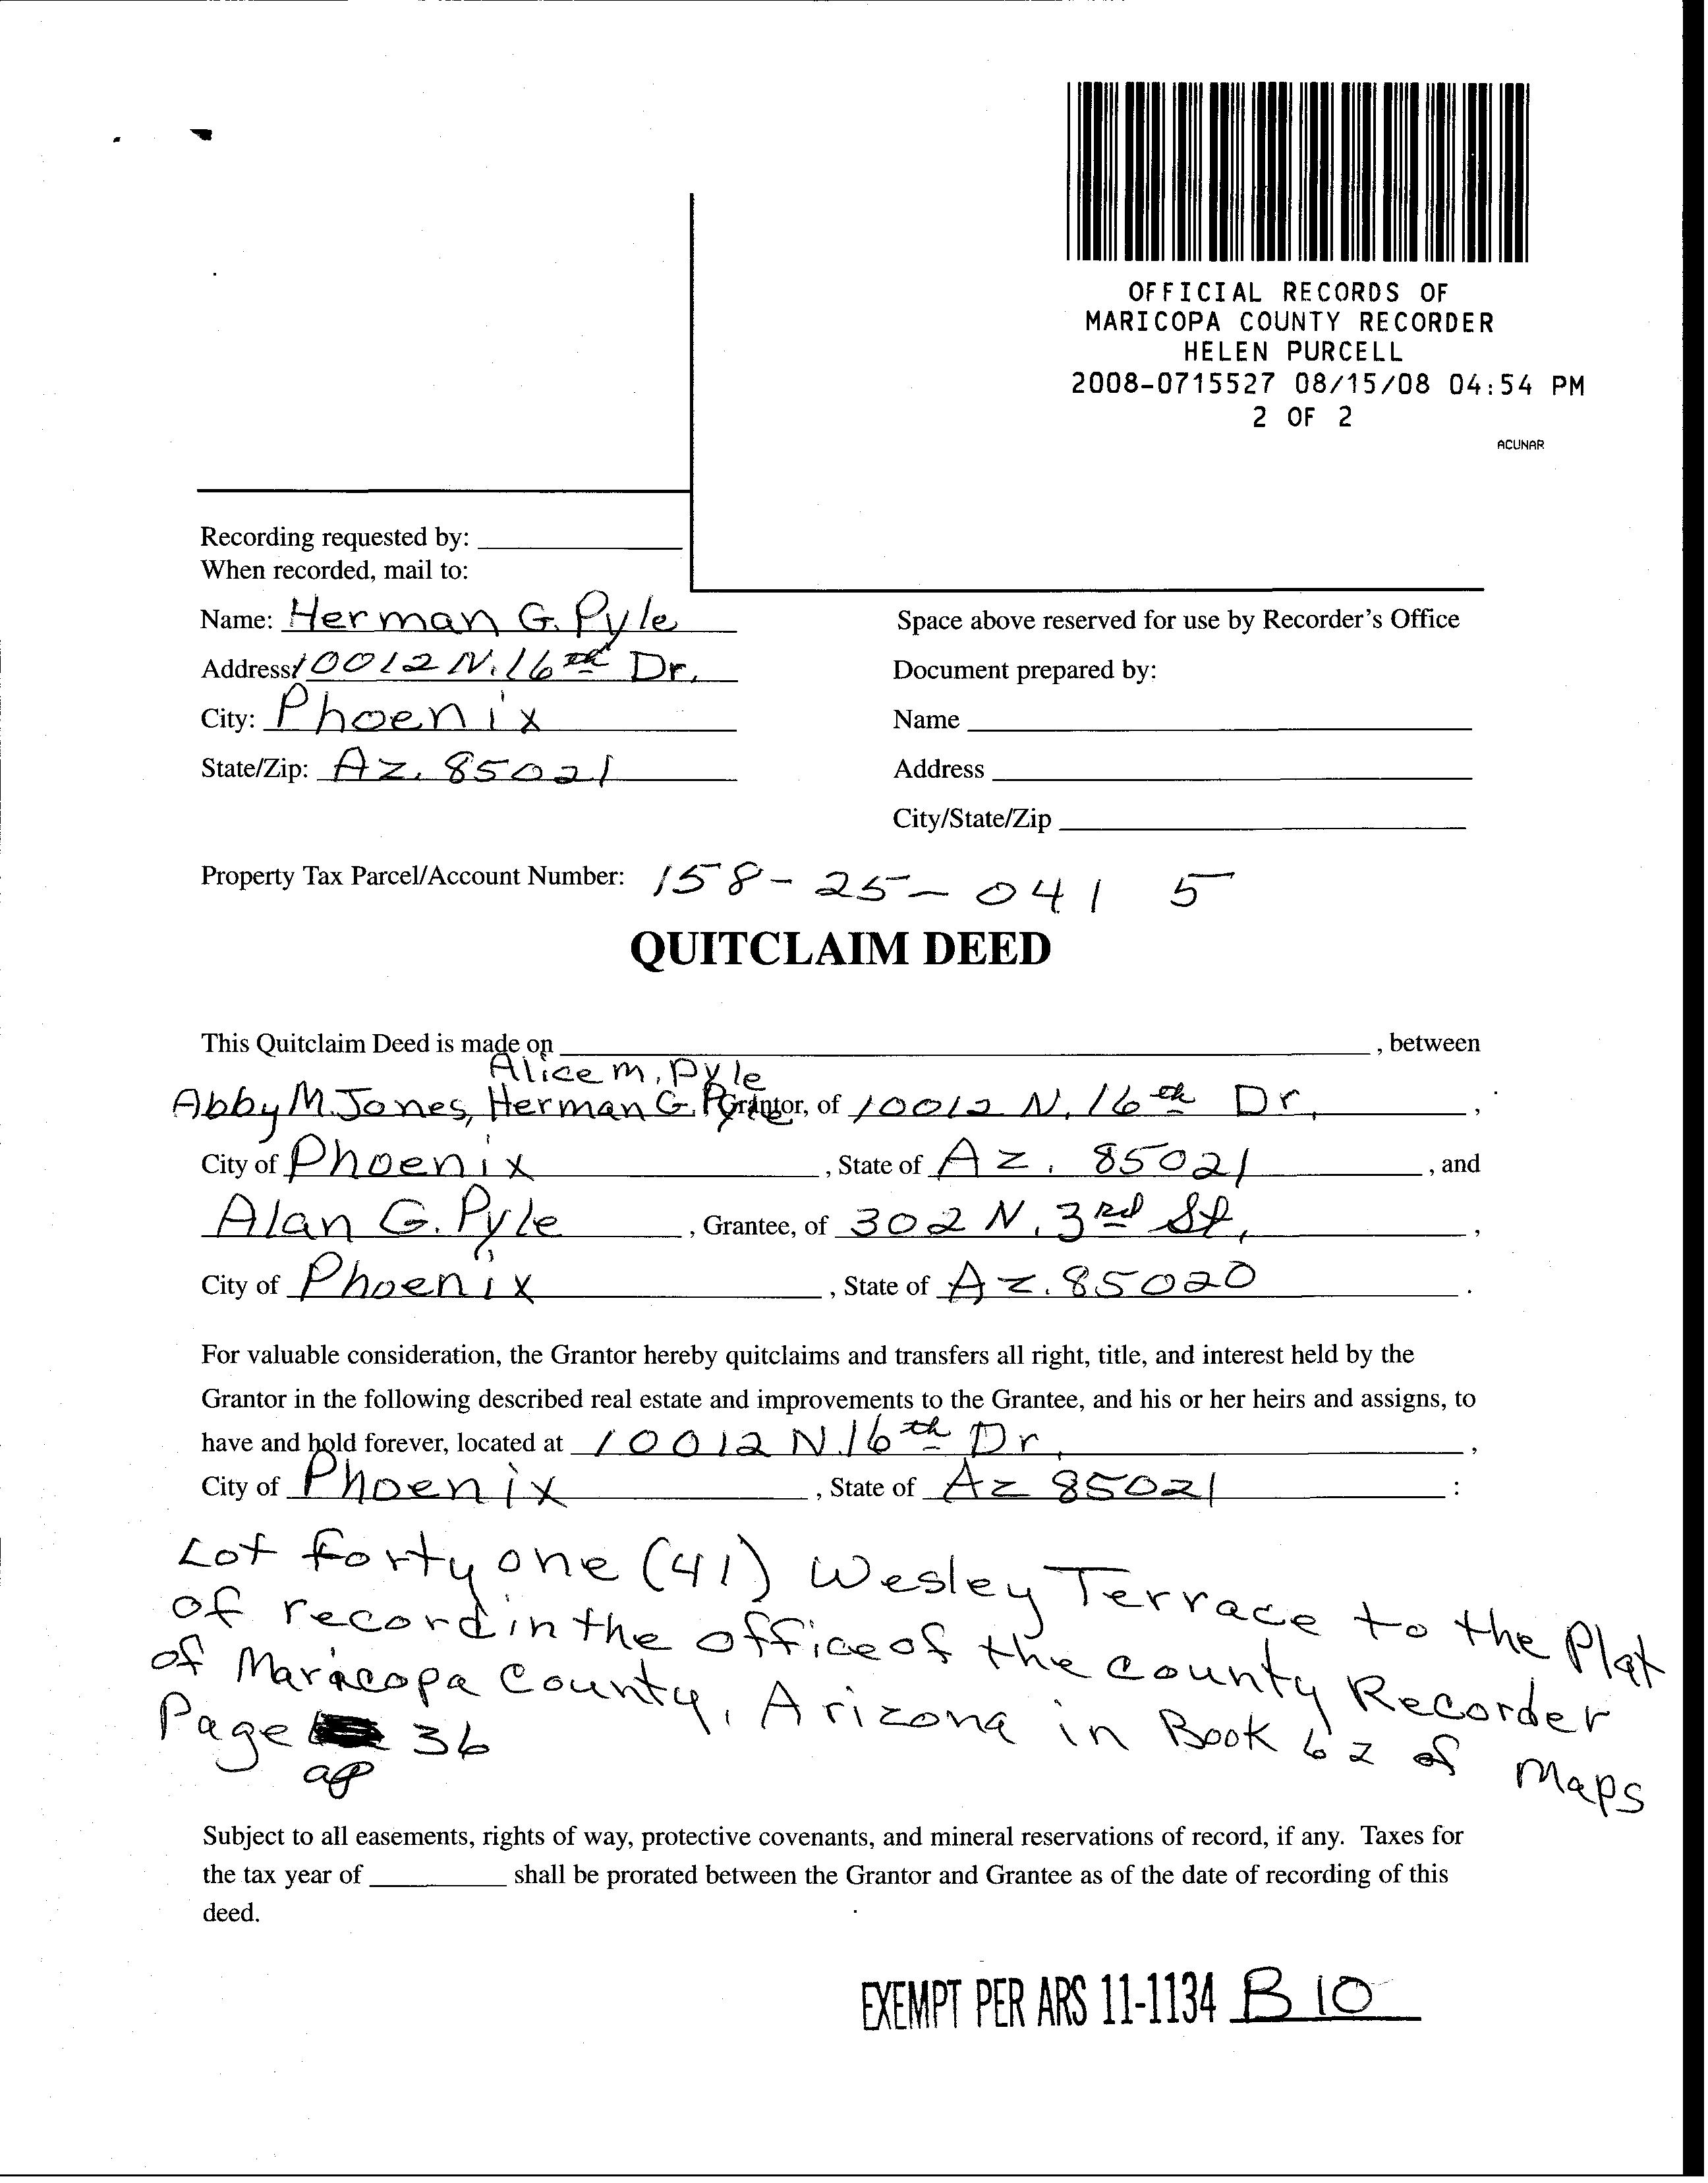 OFFICIAL RECORDS OF
MARICOPA COUNTY RECORDER
HELEN PURCELL
2008-0715527 08/15/08 04:54 PM
2 OF 2
ACUNAR
Recording requested by:
When recorded, mail to:
Name: Herman G. Pyle
Space above reserved for use by Recorder's Office
Address: 10012 N. 16th Dr.
Document prepared by:
City: Phoenix
Name
State/Zip: Az. 85021
Address
City/State/Zip
Property Tax Parcel/Account Number: 158-25-041 5
QUITCLAIM DEED
This Quitclaim Deed is made on , between
Alice M. Pyle
Abby M. Jones, Herman G. Pyle Grantor, of 10012 N. 16th Dr. ,
City of Phoenix , State of Az. 85021 , and
Alan G. Pyle , Grantee, of 302 N. 3rd St. ,
City of Phoenix , State of Az. 85020 .
For valuable consideration, the Grantor hereby quitclaims and transfers all right, title, and interest held by the
Grantor in the following described real estate and improvements to the Grantee, and his or her heirs and assigns, to
have and hold forever, located at 10012 N. 16th Dr. ,
City of Phoenix , State of Az 85021 :
Lot forty one (41) Wesley Terrace to the Plat
of record in the office of the county Recorder
of Maricopa County, Arizona in Book 62 of Maps
Page 36
ap
Subject to all easements, rights of way, protective covenants, and mineral reservations of record, if any. Taxes for
the tax year of shall be prorated between the Grantor and Grantee as of the date of recording of this
deed.
EXEMPT PER ARS 11-1134 B 10